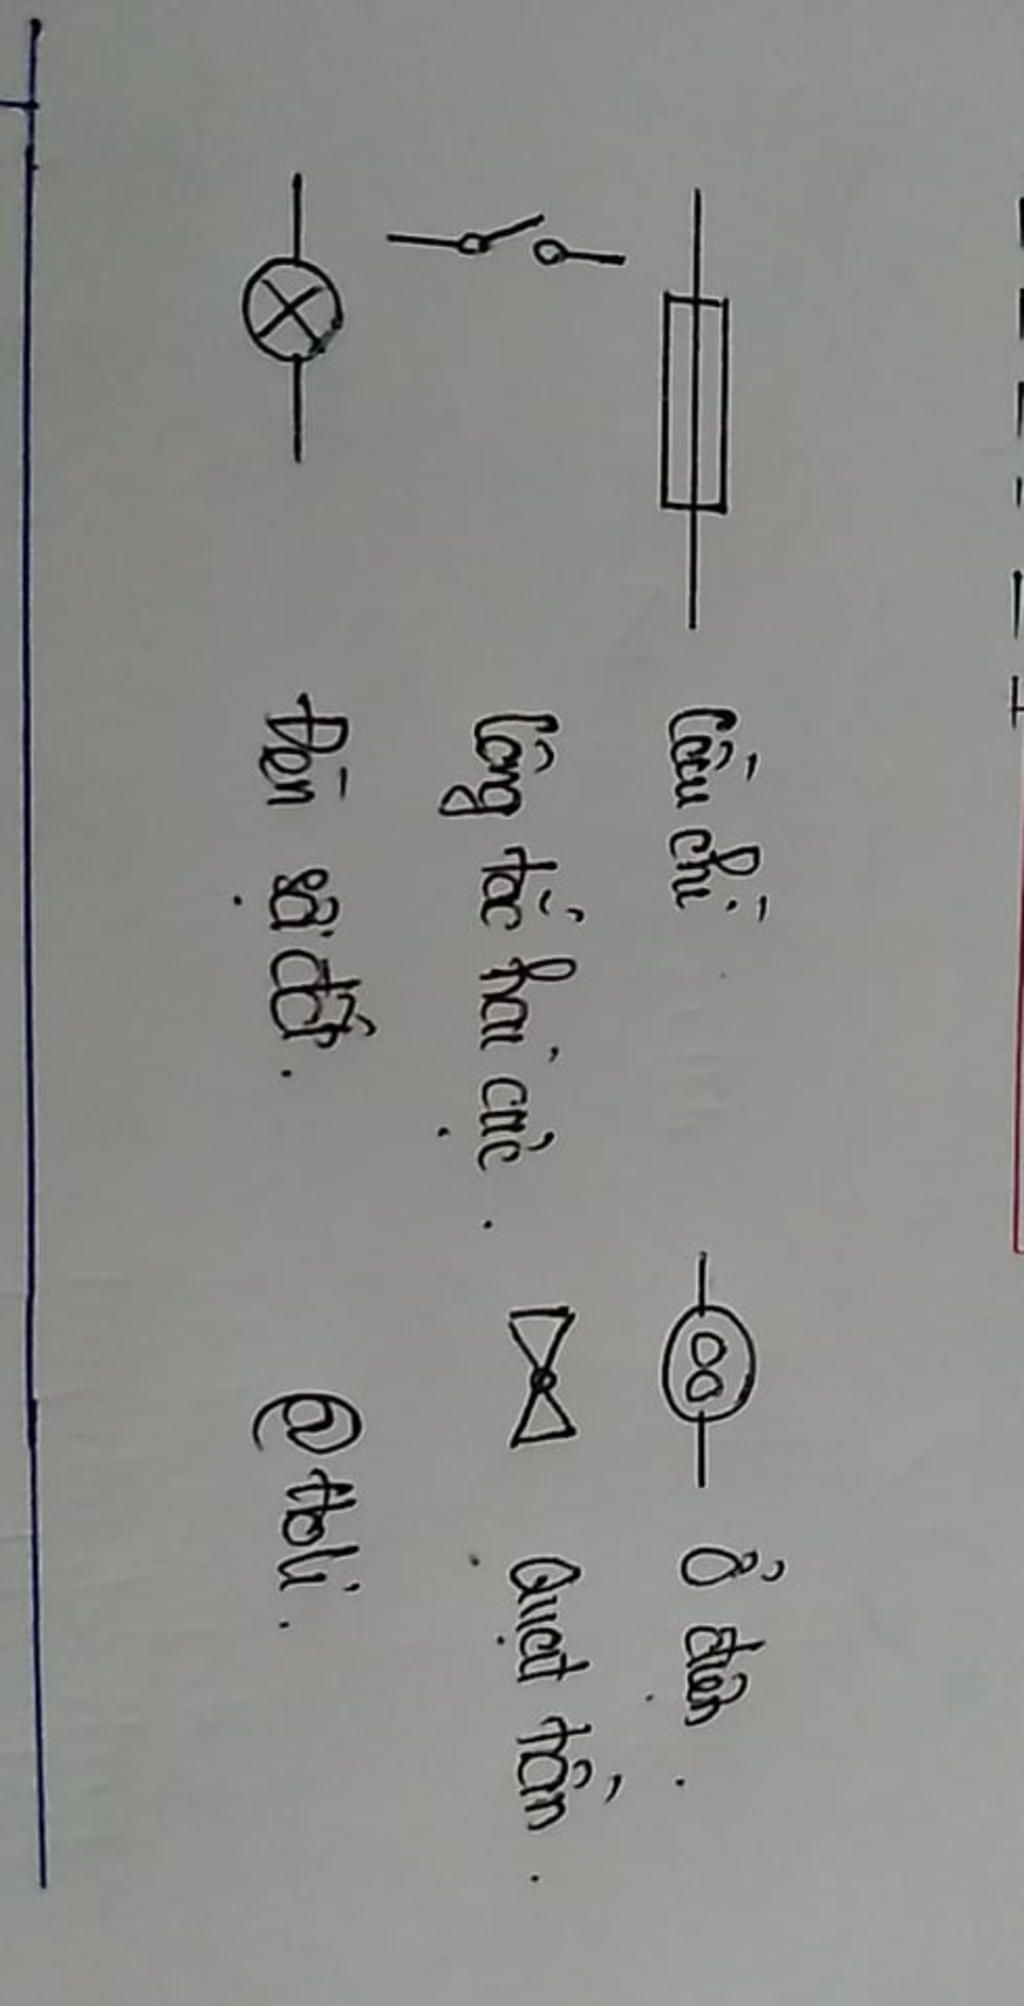 Cầu chì
Ổ điện.
Công tắc hai cực.
Quạt trần.
Đèn sợi đốt.